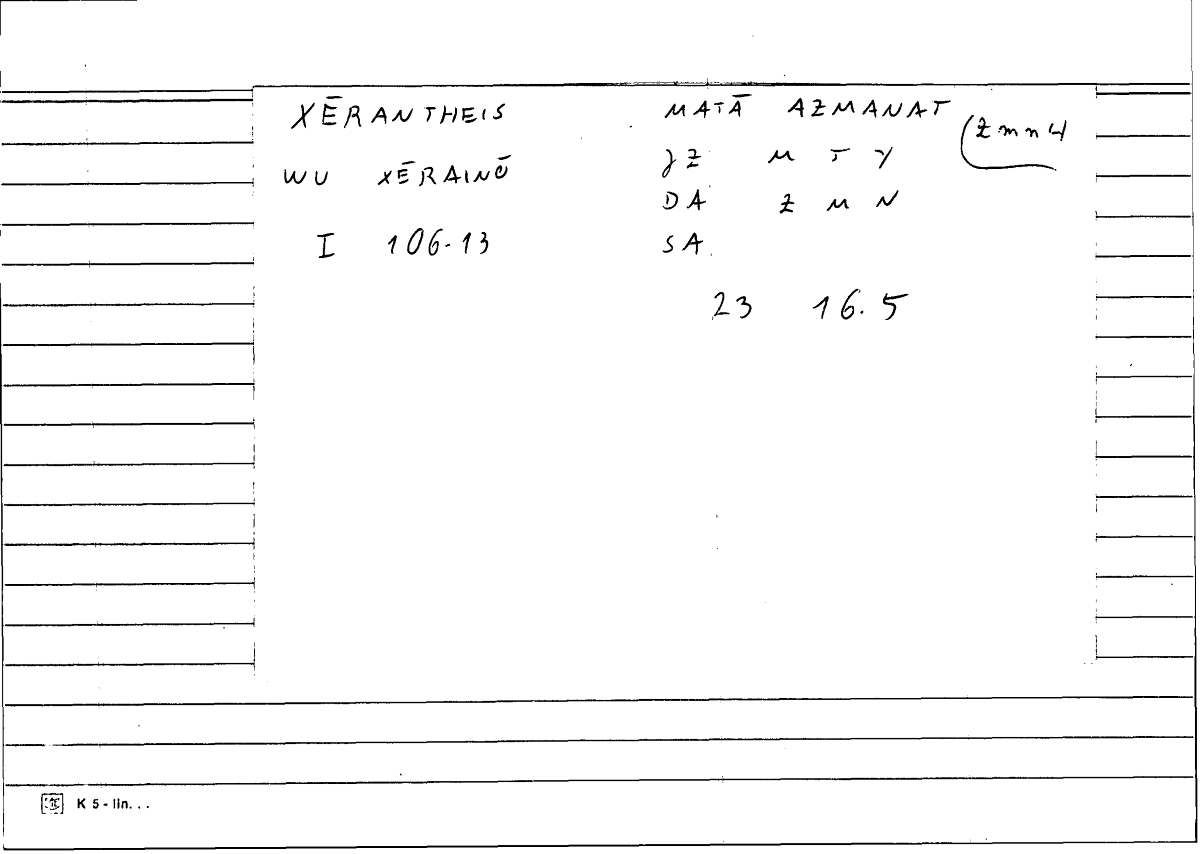 XĒRANTHEIS MATĀ AZMANAT (zmn4
WU XĒRAINŌ JZ M T Y
DA Z M N
I 106-13 SA.
23 16.5
K 5 - lin. . .